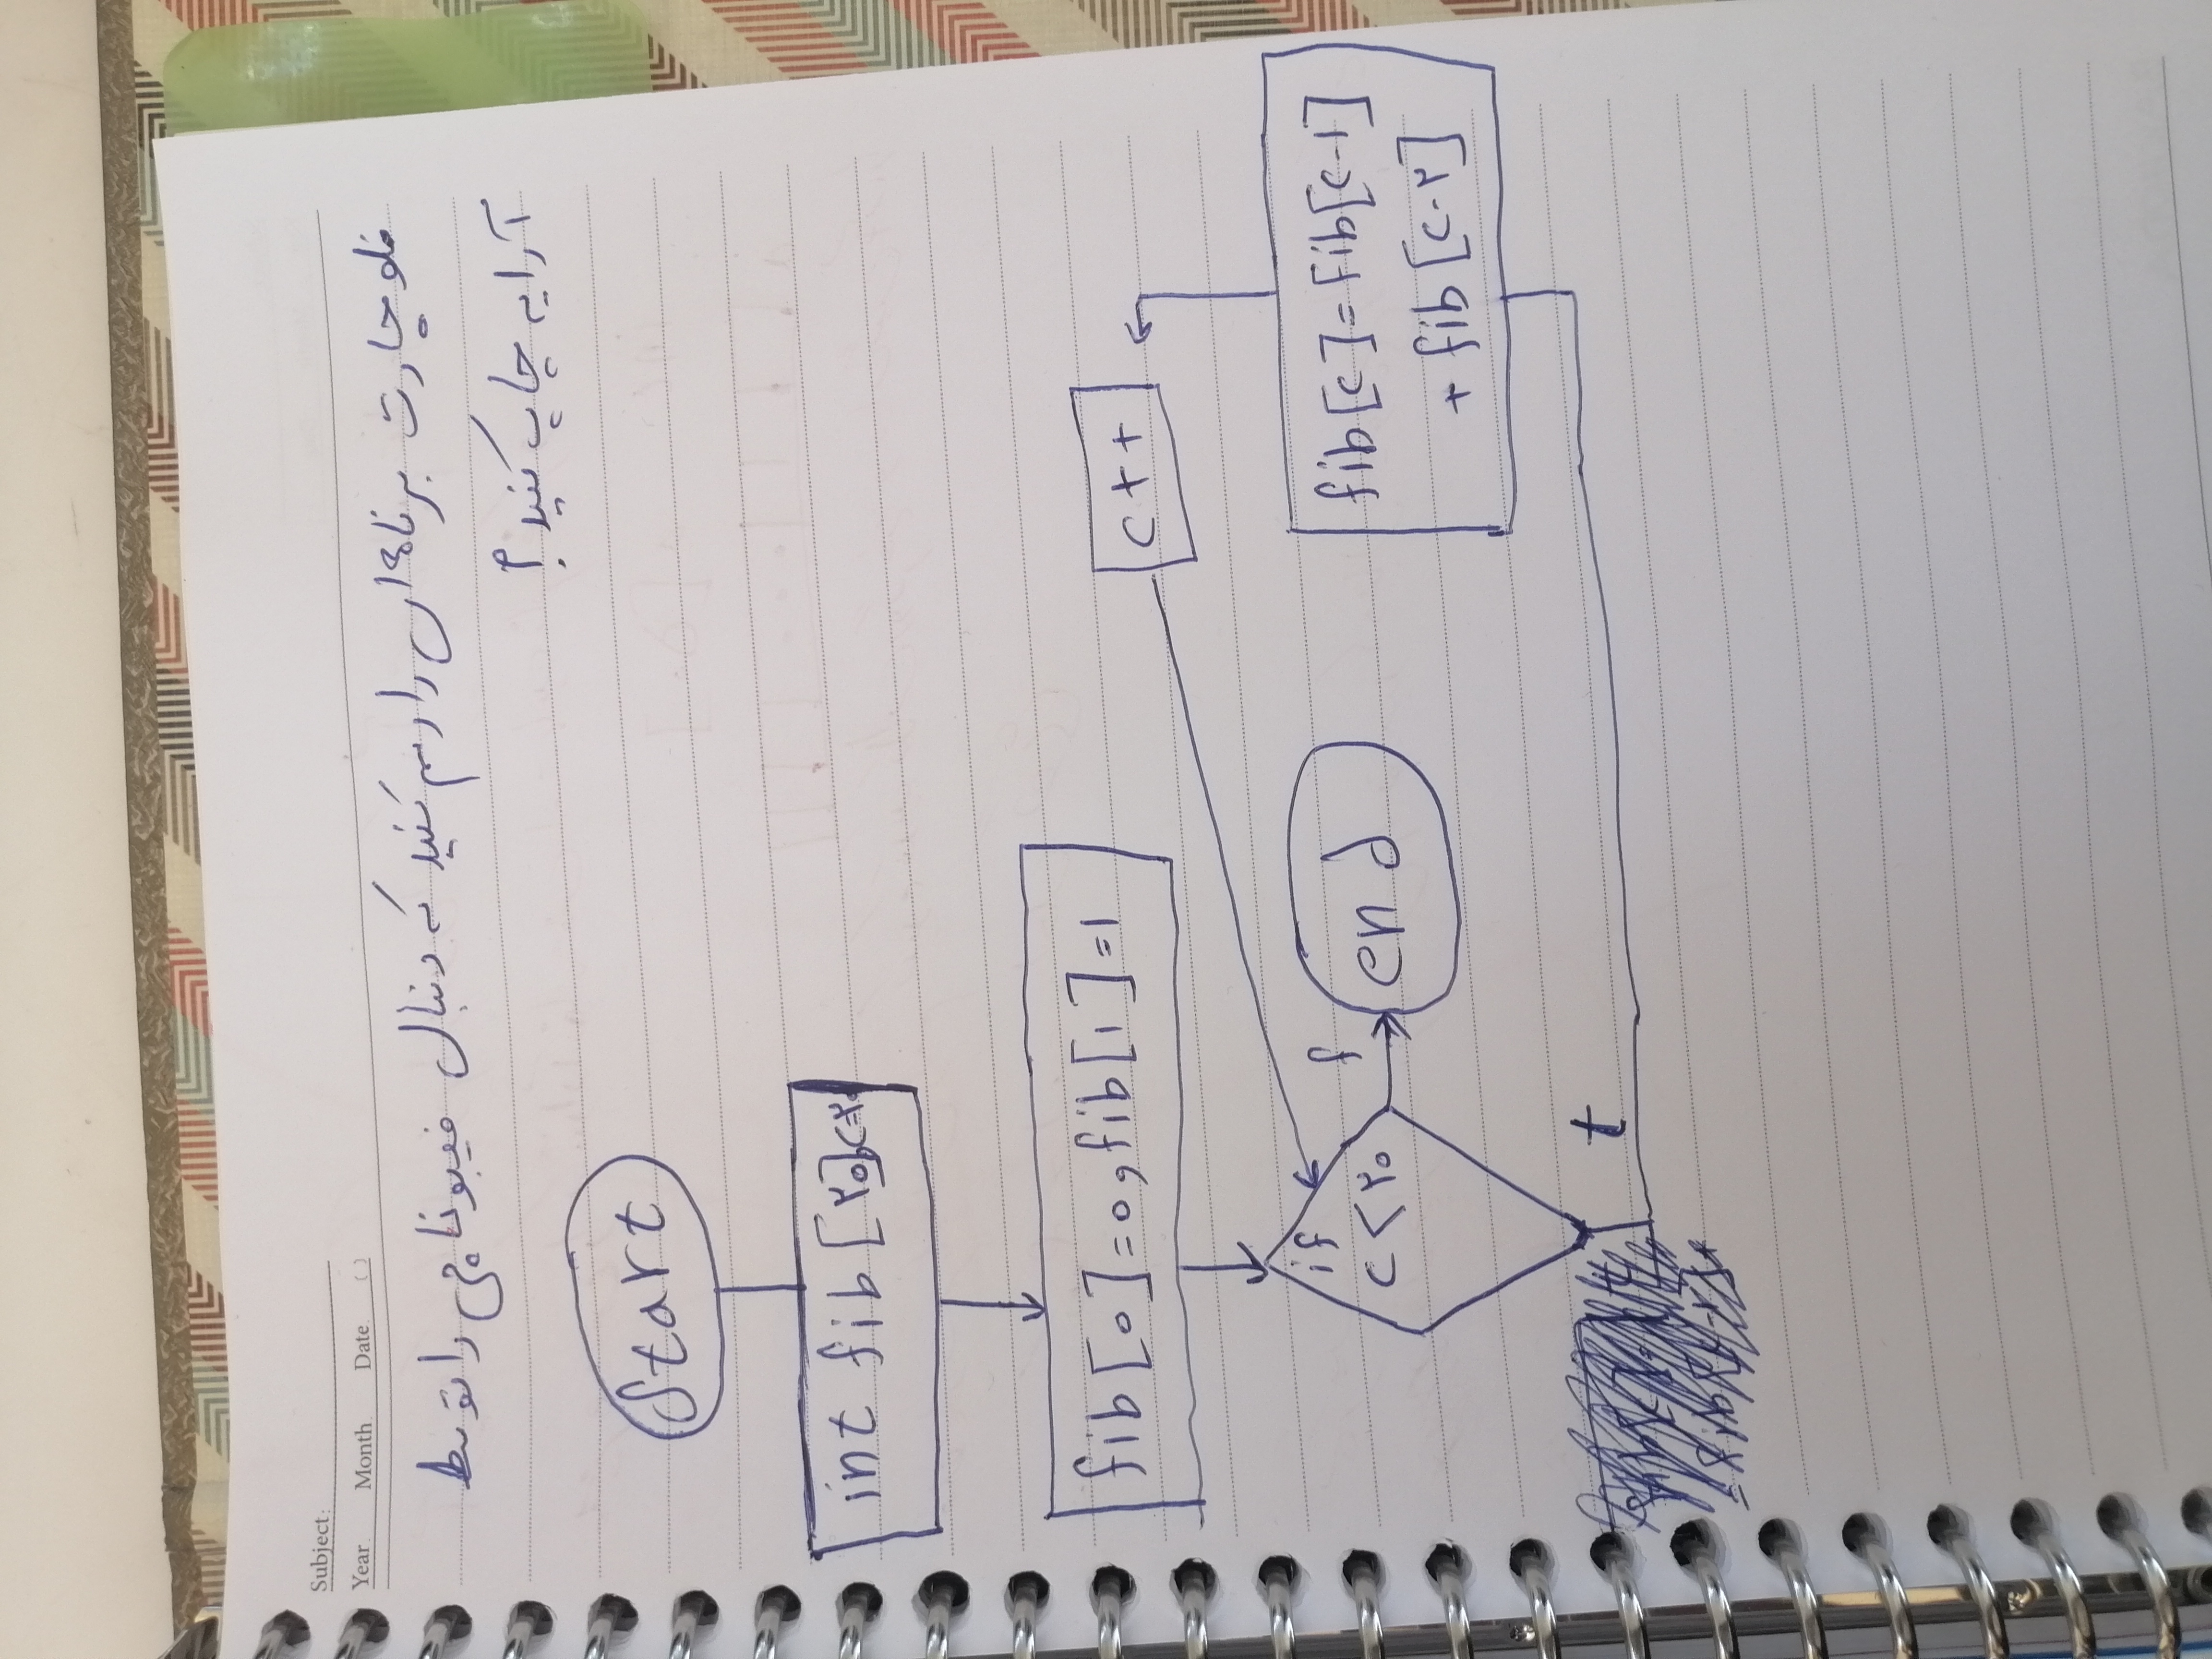 Subject:
Year Month Date ( )
فلوچارت برنامه‌ای را رسم کنید که دنبال فیبوناچی را توسط
آرایه چاپ کنید؟
Start
int fib [۲۰]
fib [0] = 0 و fib [1] = 1
if
c < ۲۰
f
end
t
fib [c] = fib [c-1]
+ fib [c-۲]
c++